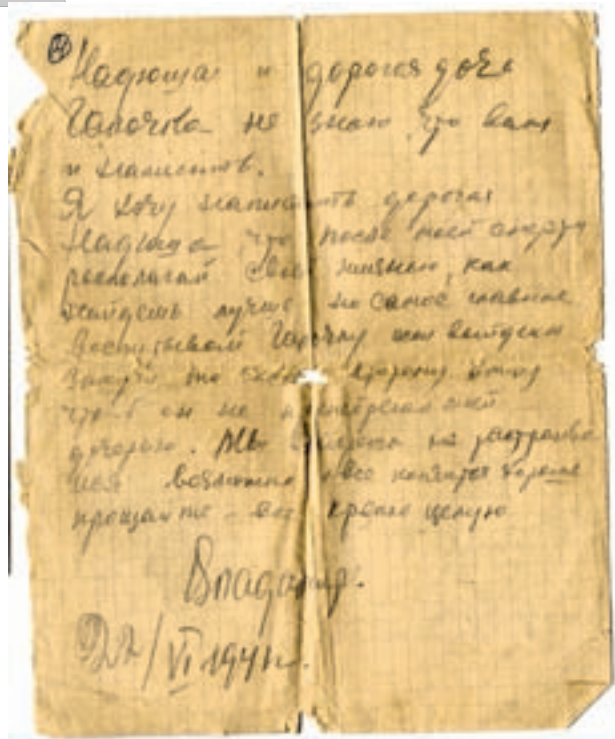 ④
Надюша и дорогая дочь
Галочка не знаю, что вам
и написать.
Я хочу написать дорогая
Надюша что после моей смерти
располагай своей жизнью, как
найдешь лучше но самое главное
воспитывай Галочку или выйдешь
замуж то
чтоб он не моей
дочерью. Мы не
возможно все кончится хорошо
прощайте – вас крепко целую
Владимир.
22/VI 1941г.